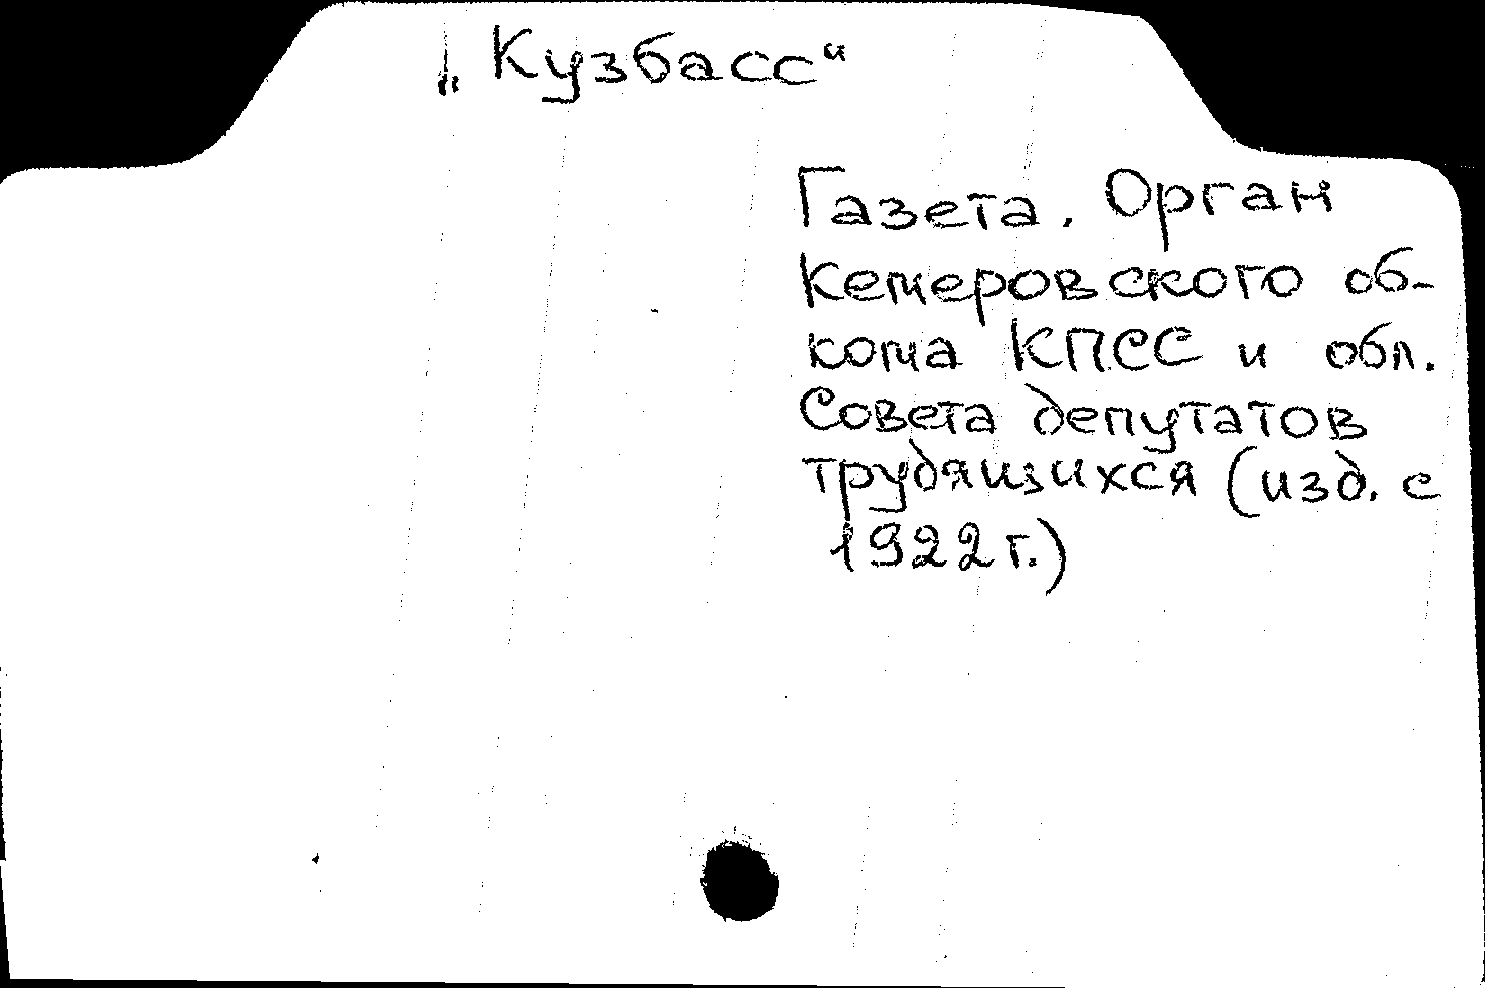 „Кузбасс“
Газета. Орган
Кемеровского об-
кома КПСС и обл.
Совета депутатов
трудящихся (изд. с
1922 г.)